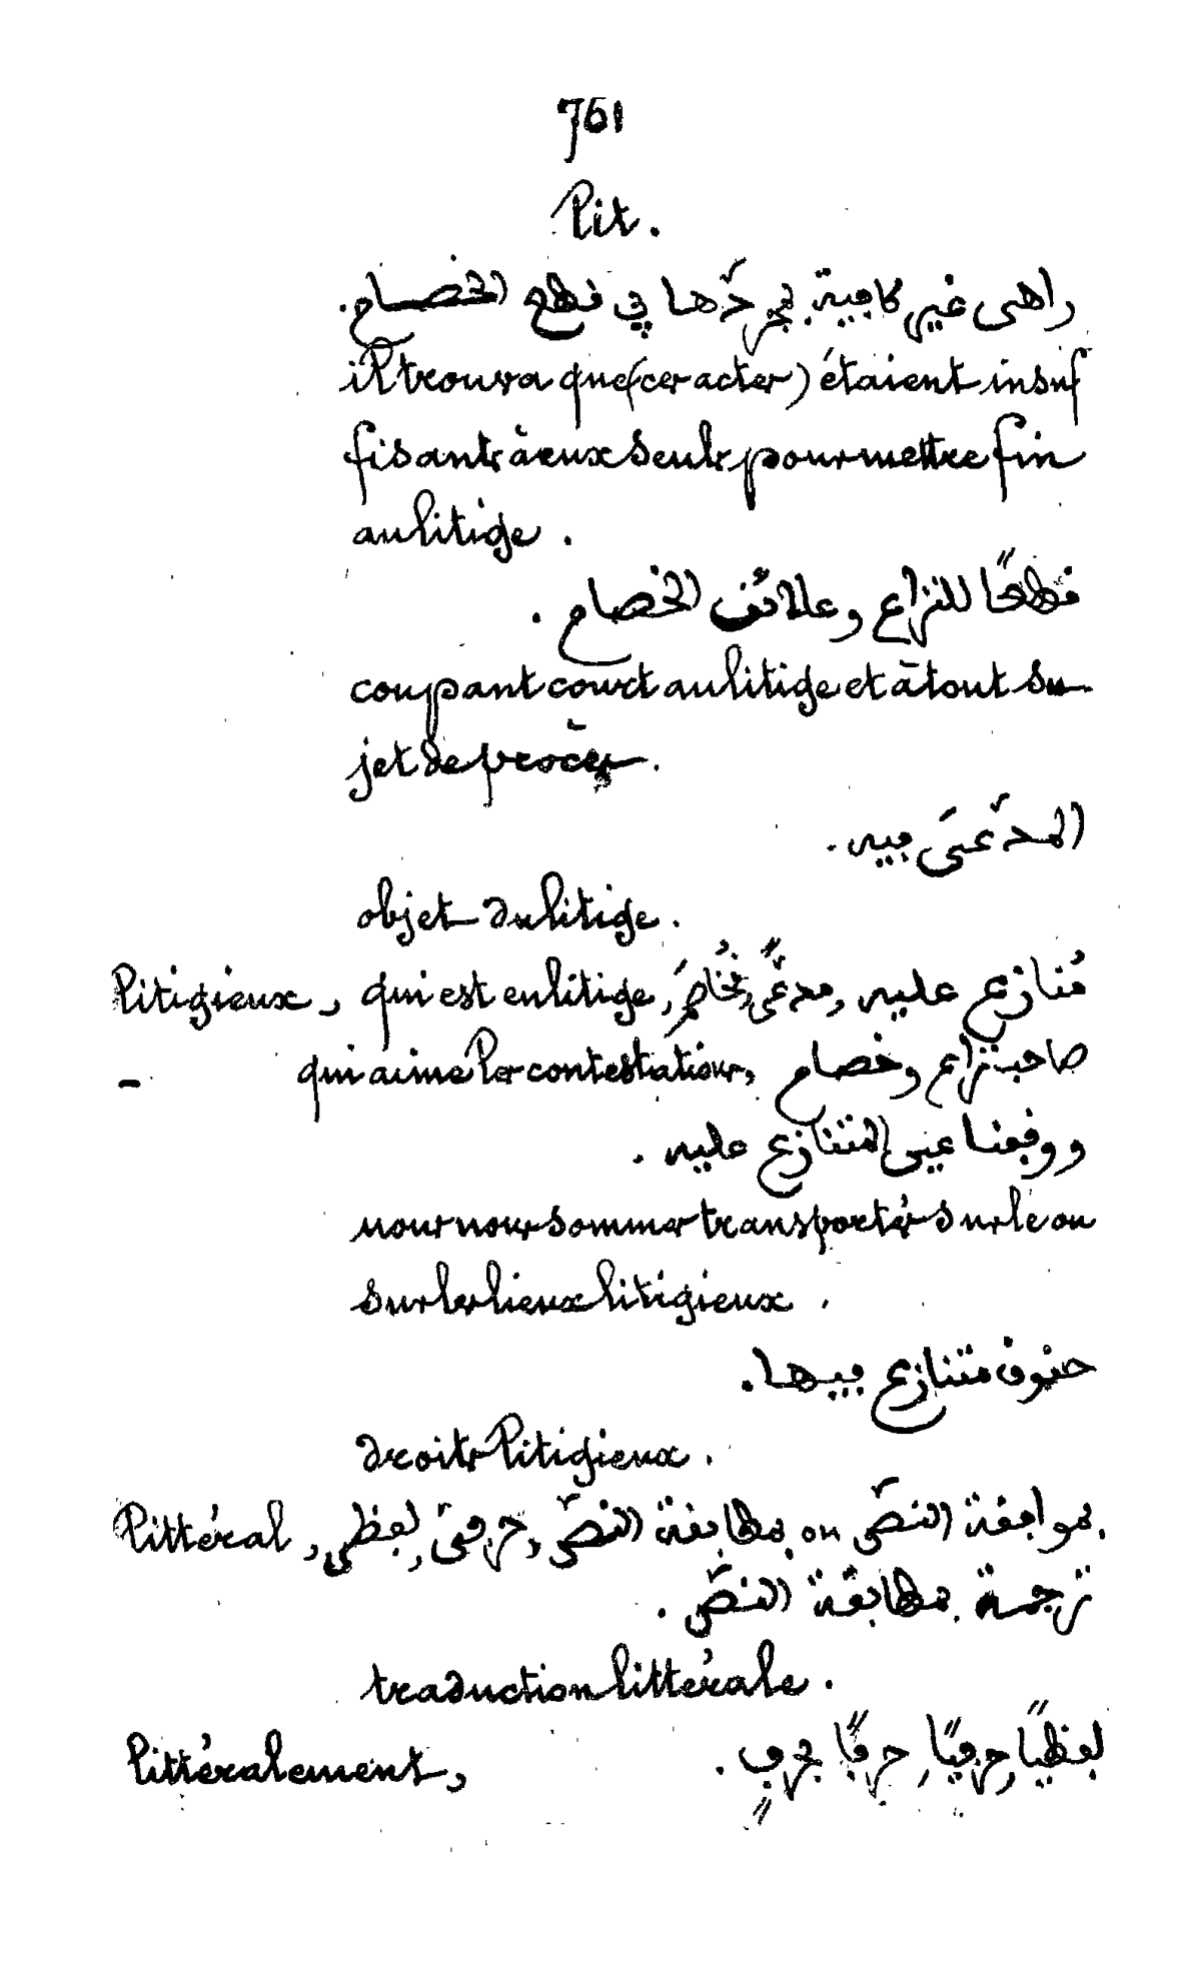 761
Lit.
راهى غير كافية بمجرّدها في قطع الخصام.
il trouva que (ces actes) étaient insuf
fisants à eux seuls pour mettre fin
au litige.
قطعًا للنزاع وعلائق الخصام.
coupant court au litige et à tout su-
jet de procès.
المدّعَى فيه.
objet du litige.
Litigieux, qui est en litige, مُنازع عليه, مدّعًى, مُخاصَم,
- qui aime les contestations, صاحب نزاع وخصام
ووقفنا عين المتنازع عليه.
nous nous sommes transportés sur le ou
sur les lieux litigieux.
حقوق متنازع فيها.
droits litigieux.
Littéral, بموافقة النصّ ou بمطابقة النصّ, حرفيّ, لفظي,
ترجمة بمطابقة النصّ.
traduction littérale.
Littéralement, لفظيًا, حرفيًا, حرفًا بحرفٍ.